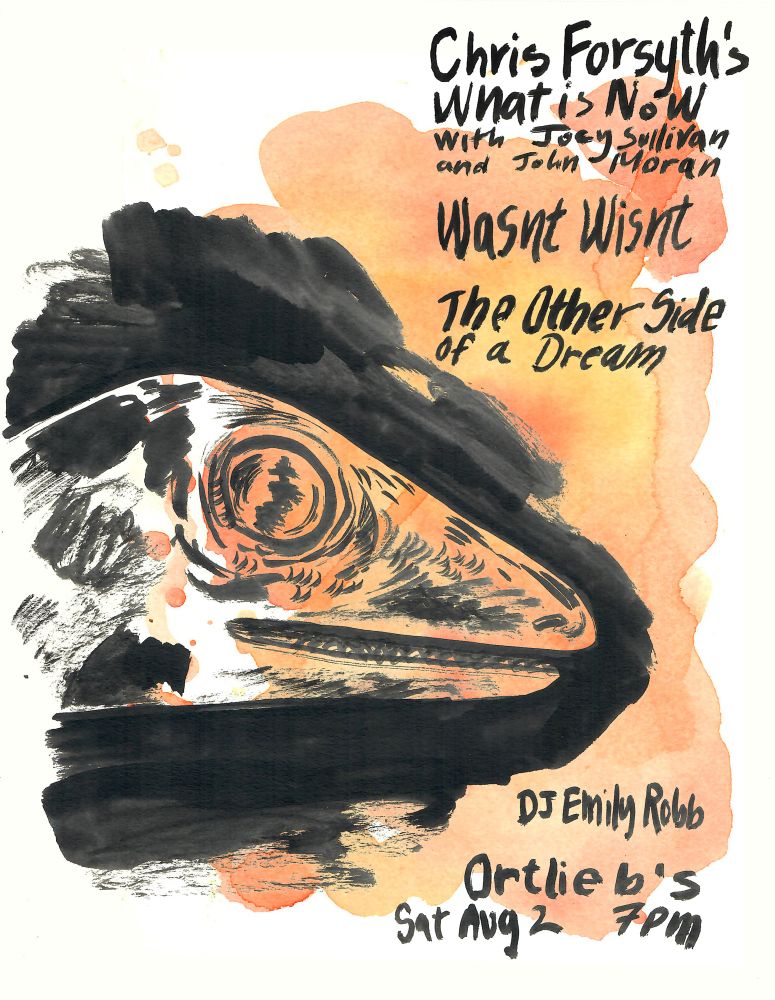 Chris Forsyth's
What is Now
with Joey Sullivan
and John Moran
Wasnt Wisnt
The Other Side
of a Dream
DJ Emily Robb
Ortlieb's
Sat Aug 2 7pm